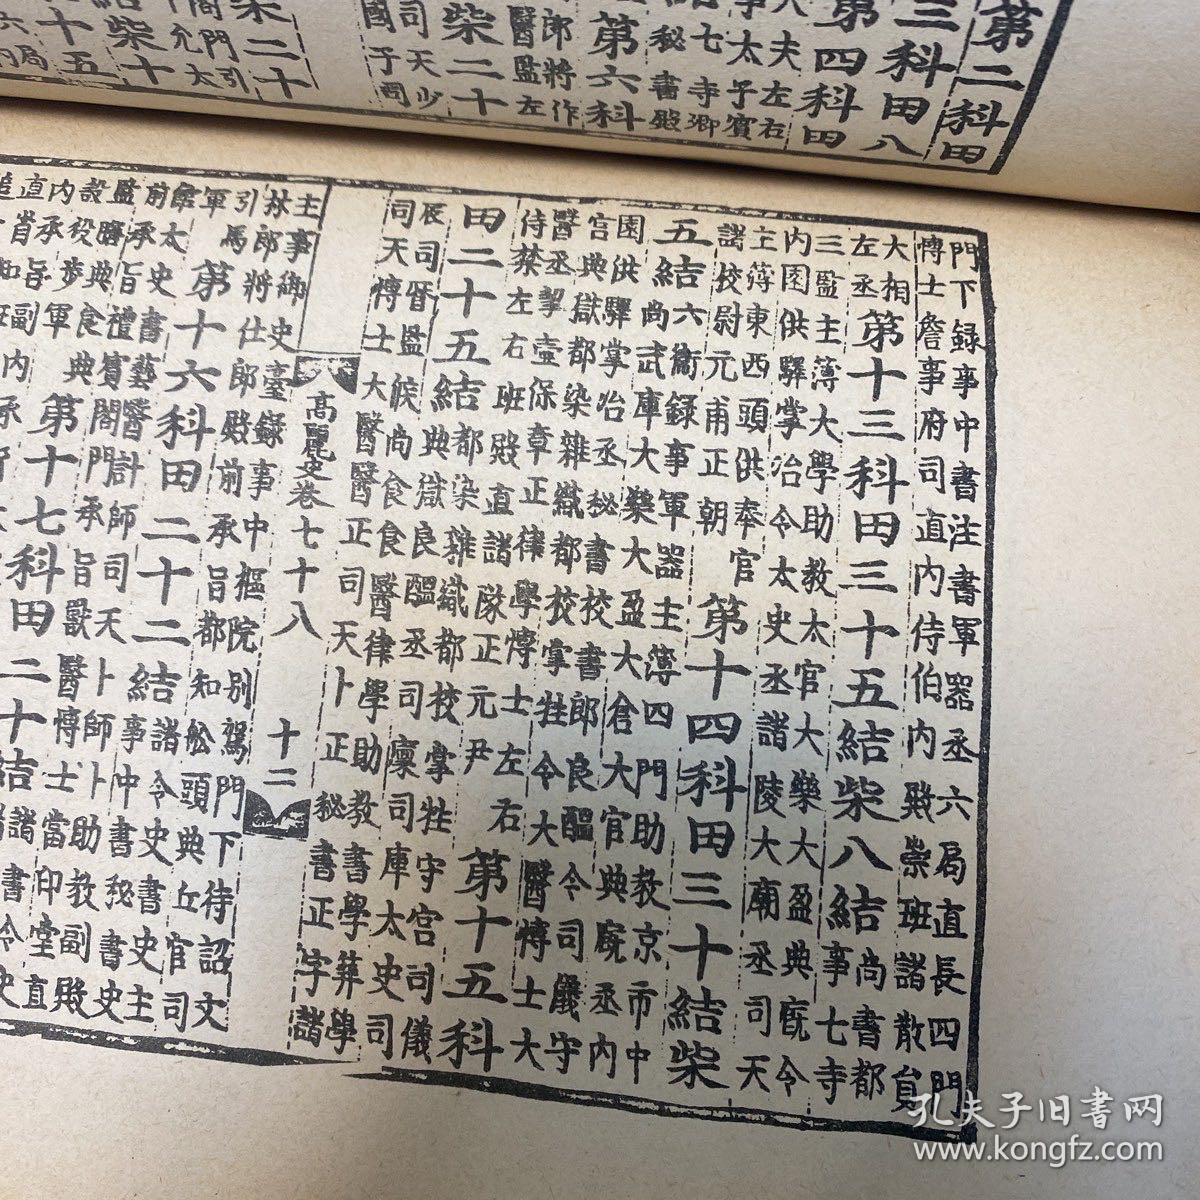 第二科田
三科田八
第四科田
夫左右
事太子賓
七寺卿
秘書殿
第六科
郎將作
醫監左
柴二十
司天少
國子司
柴二十
閤門引
允太
柴十
十五
門下錄事中書注書軍器丞六局直長四門
博士詹事府司直內侍伯內殿崇班諸散員
大相
左丞
第十三科田三十五結柴八結
尚書都
事七寺
三監主薄大學助教太官大樂大盈典廐令
內園供驛掌冶令太史丞諸陵大廟丞司天
主薄東西頭供奉官
諸校尉元甫正朝
第十四科田三十結柴
五結
六衛錄事軍器主薄四門助教京市中
尚武庫大樂大盈大倉大官典廐丞內
園供驛掌冶丞秘書校書郎良醞令司儀守
宮典獄都染雜織都校掌牲令大醫博士大
醫丞挈壺保章正律學博士左右
侍禁左右班殿直諸隊正元尹
第十五科
田二十五結
都染雜織都校掌牲守宮司儀
典獄良醞丞司廩司庫太史司
辰司曆監候尚食食醫律學助教書學筭學
司天博士大醫醫正司天卜正秘書正字諸
高麗史卷七十八
十二
主事御史臺錄事中樞院別駕門下待詔文
林郎將仕郎殿前承旨都知舩頭典丘官司
引馬
軍
第十六科田二十二結
諸令史書史主
事中書秘書史
館太史書藝醫計師司天卜師卜助教副殿
前承旨禮賓閤門承旨獸醫博士當印堂直
監膳典食典
設役步軍
第十七科田二十結
諸書令史
內承旨副內承
直省知班
孔夫子旧书网
www.kongfz.com